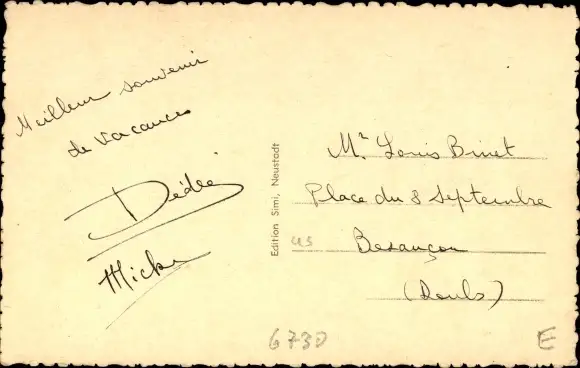 Meilleur souvenir
de vacances
Dédée
Micke
Edition Simi, Neustadt
Mr Louis Binet
Place du 8 Septembre
Besançon
(Doubs)
us
6730
E